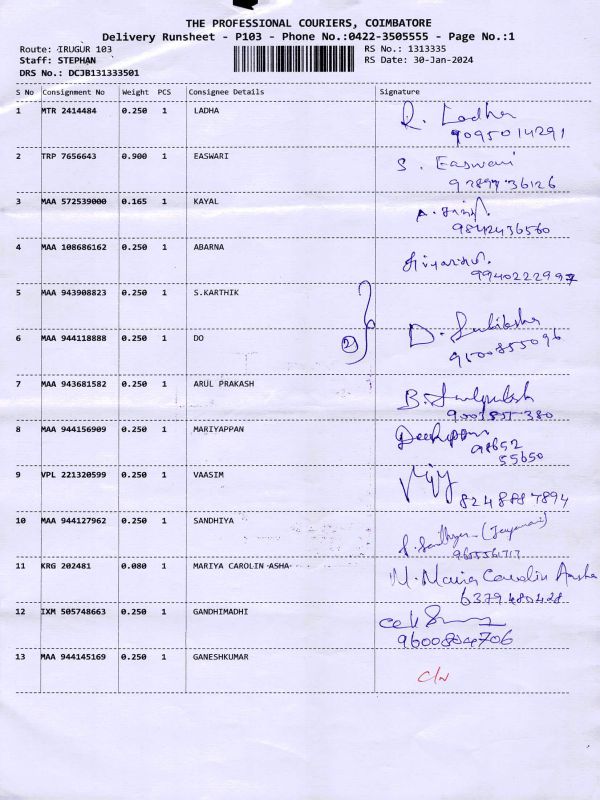 THE PROFESSIONAL COURIERS, COIMBATORE
Delivery Runsheet - P103 - Phone No.:0422-3505555 - Page No.:1
Route: IRUGUR 103 RS No.: 1313335
Staff: STEPHAN RS Date: 30-Jan-2024
DRS No.: DCJB131333501
S No Consignment No Weight PCS Consignee Details Signature
1 MTR 2414484 0.250 1 LADHA R. Ladha
9095014291
2 TRP 7656643 0.900 1 EASWARI S. Easwari
36126
3 MAA 572539000 0.165 1 KAYAL
9842436560
4 MAA 108686162 0.250 1 ABARNA
9940222997
5 MAA 943908823 0.250 1 S.KARTHIK
6 MAA 944118888 0.250 1 DO 2 D.
9500855096
7 MAA 943681582 0.250 1 ARUL PRAKASH B.
380
8 MAA 944156909 0.250 1 MARIYAPPAN
98652
55650
9 VPL 221320599 0.250 1 VAASIM
8248887894
10 MAA 944127962 0.250 1 SANDHIYA
11 KRG 202481 0.080 1 MARIYA CAROLIN ASHA M. Maria Carolin Aasha
6379480428
12 IXM 505748663 0.250 1 GANDHIMADHI
9600804706
13 MAA 944145169 0.250 1 GANESHKUMAR